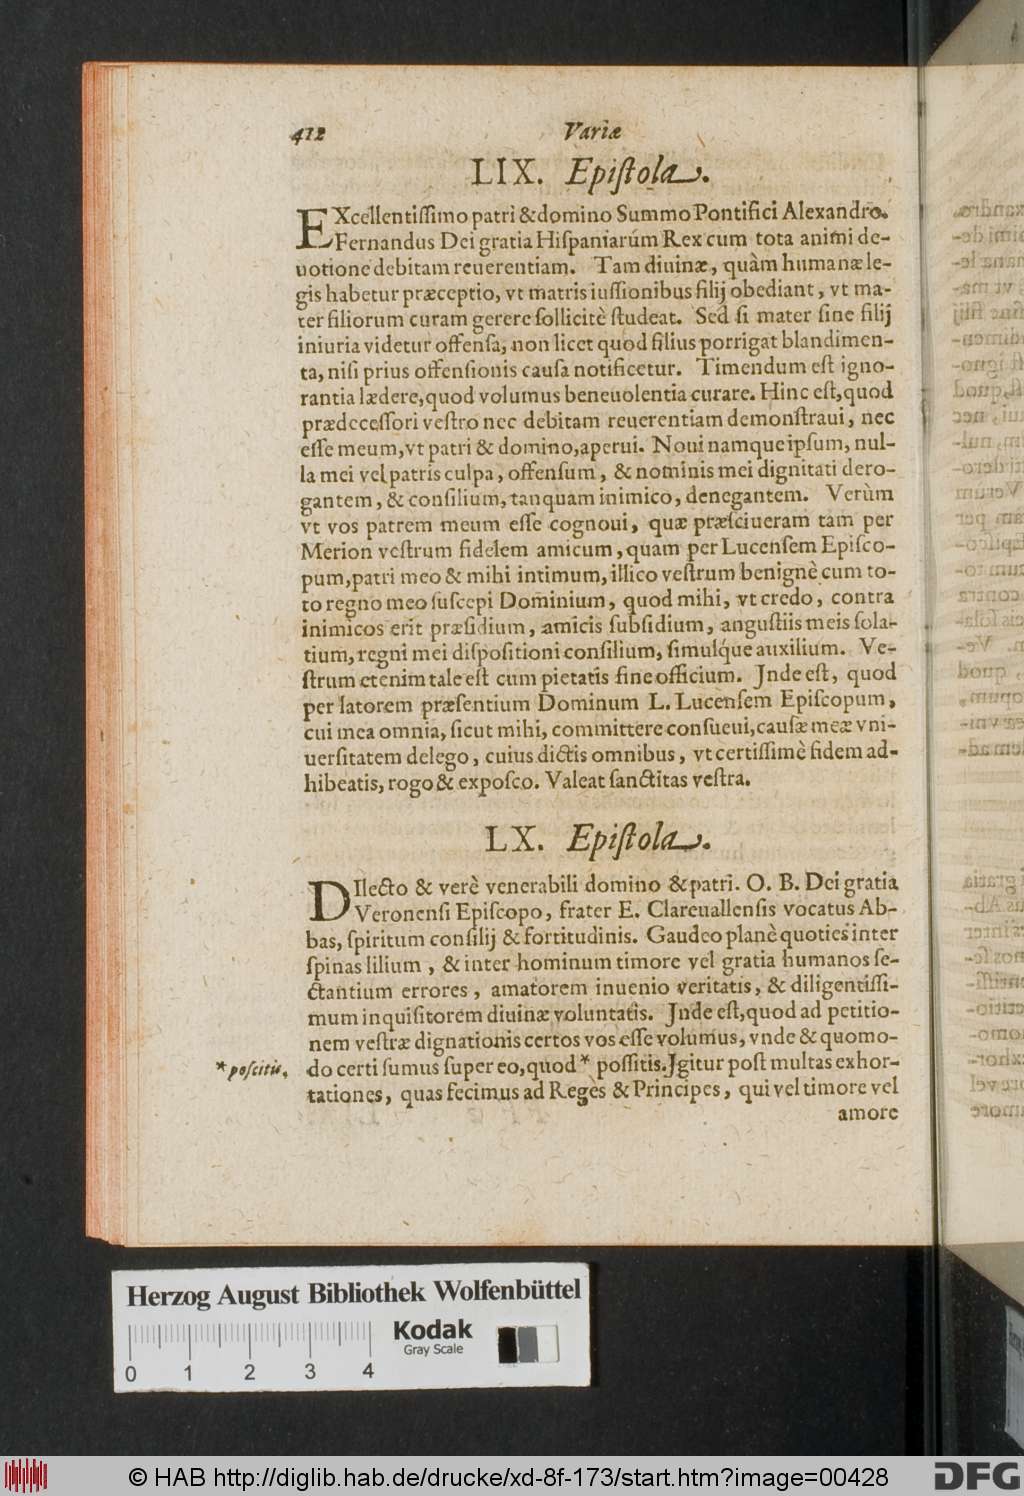 412
Variæ
LIX. Epiſtola.
EXcellentiſſimo patri & domino Summo Pontifici Alexandro.
Fernandus Dei gratia Hiſpaniarúm Rex cum tota animi de-
uotione debitam reuerentiam. Tam diuinæ, quàm humanæ le-
gis habetur præceptio, vt matris iuſſionibus filij obediant, vt ma-
ter filiorum curam gerere ſollicitè ſtudeat. Sed ſi mater ſine filij
iniuria videtur offenſa, non licet quod filius porrigat blandimen-
ta, niſi prius offenſionis cauſa notificetur. Timendum eſt igno-
rantia lædere, quod volumus beneuolentia curare. Hinc eſt, quod
prædeceſſori veſtro nec debitam reuerentiam demonſtraui, nec
eſſe meum, vt patri & domino, aperui. Noui namque ipſum, nul-
la mei vel patris culpa, offenſum, & nominis mei dignitati dero-
gantem, & conſilium, tanquam inimico, denegantem. Verùm
vt vos patrem meum eſſe cognoui, quæ præſciueram tam per
Merion veſtrum fidelem amicum, quam per Lucenſem Epiſco-
pum, patri meo & mihi intimum, illico veſtrum benignè cum to-
to regno meo ſuſcepi Dominium, quod mihi, vt credo, contra
inimicos erit præſidium, amicis ſubſidium, anguſtiis meis ſola-
tium, regni mei diſpoſitioni conſilium, ſimulq́ue auxilium. Ve-
ſtrum etenim tale eſt cum pietatis ſine officium. Jnde eſt, quod
per latorem præſentium Dominum L. Lucenſem Epiſcopum,
cui mea omnia, ſicut mihi, committere conſueui, cauſæ meæ vni-
uerſitatem delego, cuius dictis omnibus, vt certiſſimè fidem ad-
hibeatis, rogo & expoſco. Valeat ſanctitas veſtra.
LX. Epiſtola.
DIlecto & verè venerabili domino & patri. O. B. Dei gratia
Veronenſi Epiſcopo, frater E. Clareuallenſis vocatus Ab-
bas, ſpiritum conſilij & fortitudinis. Gaudeo planè quoties inter
ſpinas lilium, & inter hominum timore vel gratia humanos ſe-
ctantium errores, amatorem inuenio veritatis, & diligentiſſi-
mum inquiſitorem diuinæ voluntatis. Jnde eſt, quod ad petitio-
nem veſtræ dignationis certos vos eſſe volumus, vnde & quomo-
* poſcitis. do certi ſumus ſuper eo, quod* poſſitis. Jgitur poſt multas exhor-
tationes, quas fecimus ad Reges & Principes, qui vel timore vel
amore
Herzog August Bibliothek Wolfenbüttel
Kodak
Gray Scale
0 1 2 3 4
© HAB http://diglib.hab.de/drucke/xd-8f-173/start.htm?image=00428
DFG